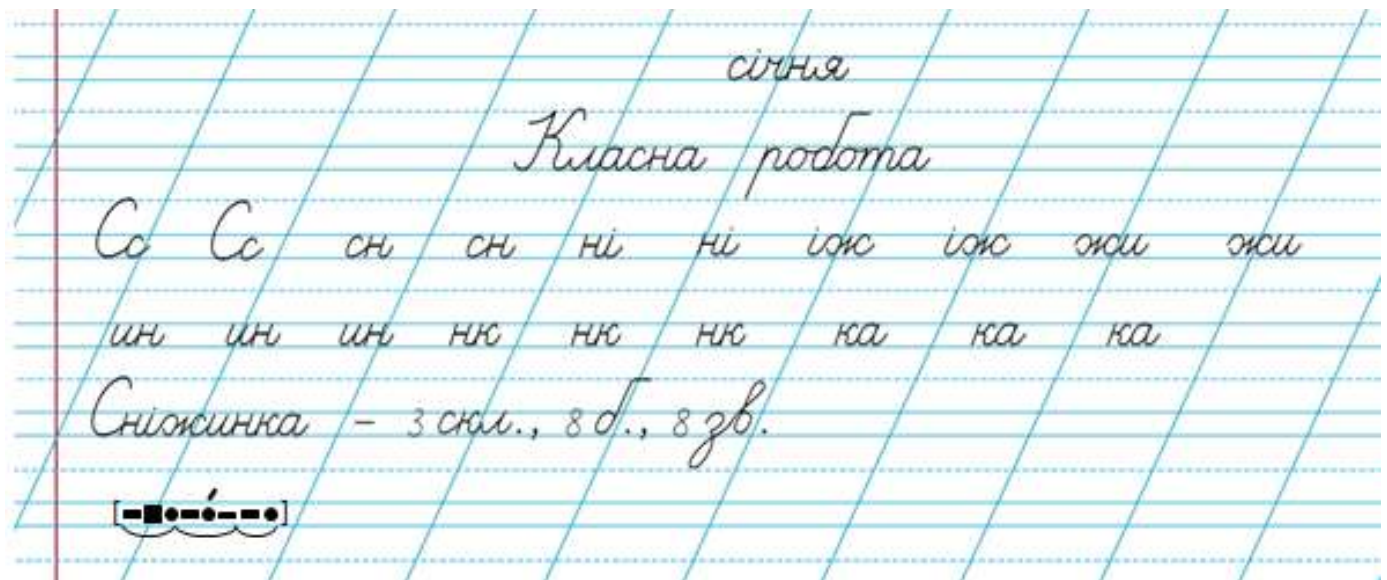 січня
Класна робота
Сс Сс сн сн ні ні іж іж жи жи
ин ин ин нк нк нк ка ка ка
Сніжинка – 3 скл., 8 б., 8 зв.